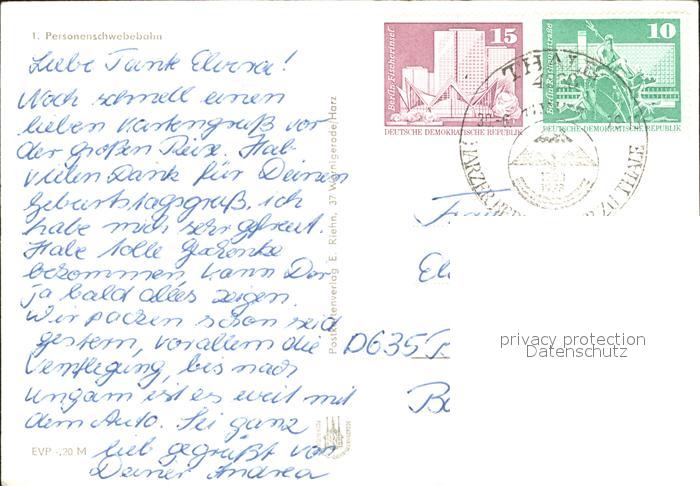 1. Personenschwebebahn
Liebe Tante Elvera!
Noch schnell einen
lieben Kartengruß vor
der großen Reise. Hab
vielen Dank für Deinen
Geburtstagsgruß. ich
habe mich sehr gefreut.
Habe tolle Geschenke
bekommen, kann Dir
ja bald alles zeigen.
Wir packen schon seid
gestern, vorallem die
Verpflegung, bis nach
Ungarn ist es weit mit
dem Auto. Sei ganz
lieb gegrüßt von
Deiner Andrea
EVP -,20 M
Postkartenverlag E. Riehn, 37 Wernigerode/Harz
15
Berlin, Fischerinsel
DEUTSCHE DEMOKRATISCHE REPUBLIK
10
Berlin, Rathausstraße
DEUTSCHE DEMOKRATISCHE REPUBLIK
THALE
HARZER
ZU THALE
D635
privacy protection
Datenschutz